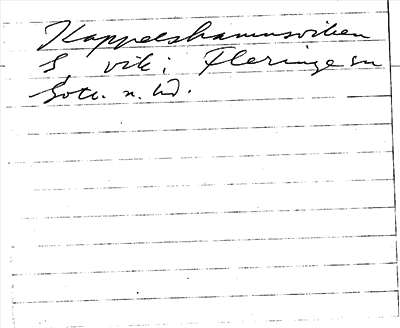 Kappelshamnsviken
S vik i Fleringe sn
Gotl. n. hd.